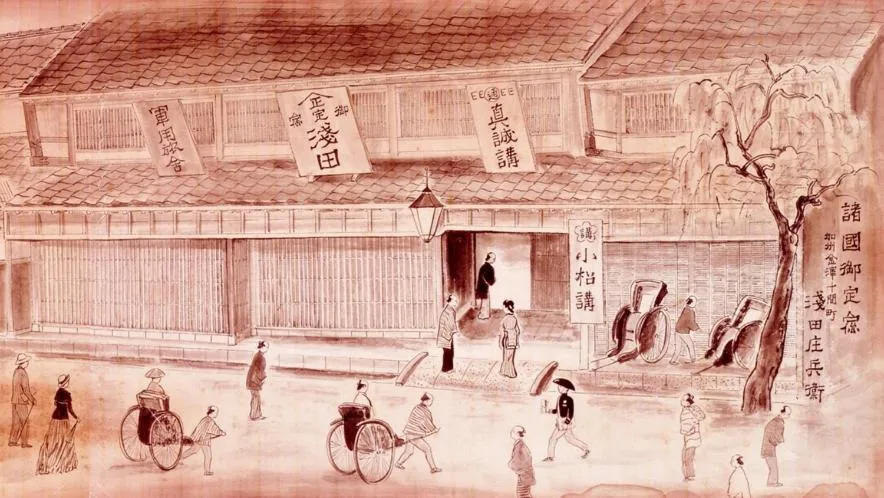 諸國御定宿
加州金澤十間町
淺田庄兵衞
講
小松講
EE 通 EE
真誠講
御定宿
淺田
軍用旅舎